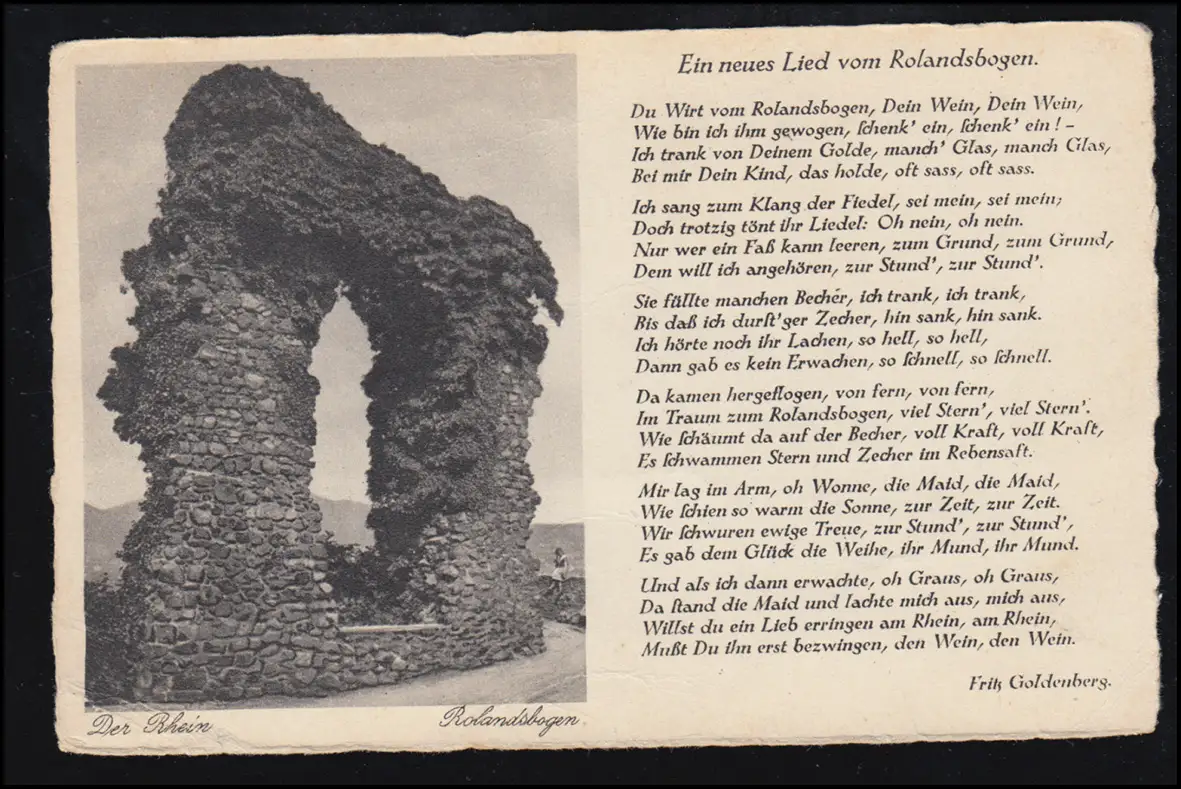 Ein neues Lied vom Rolandsbogen.
Du Wirt vom Rolandsbogen, Dein Wein, Dein Wein,
Wie bin ich ihm gewogen, schenk' ein, schenk' ein! –
Ich trank von Deinem Golde, manch' Glas, manch Glas,
Bei mir Dein Kind, das holde, oft sass, oft sass.
Ich sang zum Klang der Fiedel, sei mein, sei mein;
Doch trotzig tönt ihr Liedel: Oh nein, oh nein.
Nur wer ein Faß kann leeren, zum Grund, zum Grund,
Dem will ich angehören, zur Stund', zur Stund'.
Sie füllte manchen Becher, ich trank, ich trank,
Bis daß ich durst'ger Zecher, hin sank, hin sank.
Ich hörte noch ihr Lachen, so hell, so hell,
Dann gab es kein Erwachen, so schnell, so schnell.
Da kamen hergeflogen, von fern, von fern,
Im Traum zum Rolandsbogen, viel Stern', viel Stern'.
Wie schäumt da auf der Becher, voll Kraft, voll Kraft,
Es schwammen Stern und Zecher im Rebensaft.
Mir lag im Arm, oh Wonne, die Maid, die Maid,
Wie schien so warm die Sonne, zur Zeit, zur Zeit.
Wir schwuren ewige Treue, zur Stund', zur Stund',
Es gab dem Glück die Weihe, ihr Mund, ihr Mund.
Und als ich dann erwachte, oh Graus, oh Graus,
Da stand die Maid und lachte mich aus, mich aus,
Willst du ein Lieb erringen am Rhein, am Rhein,
Mußt Du ihn erst bezwingen, den Wein, den Wein.
Fritz Goldenberg.
Der Rhein Rolandsbogen